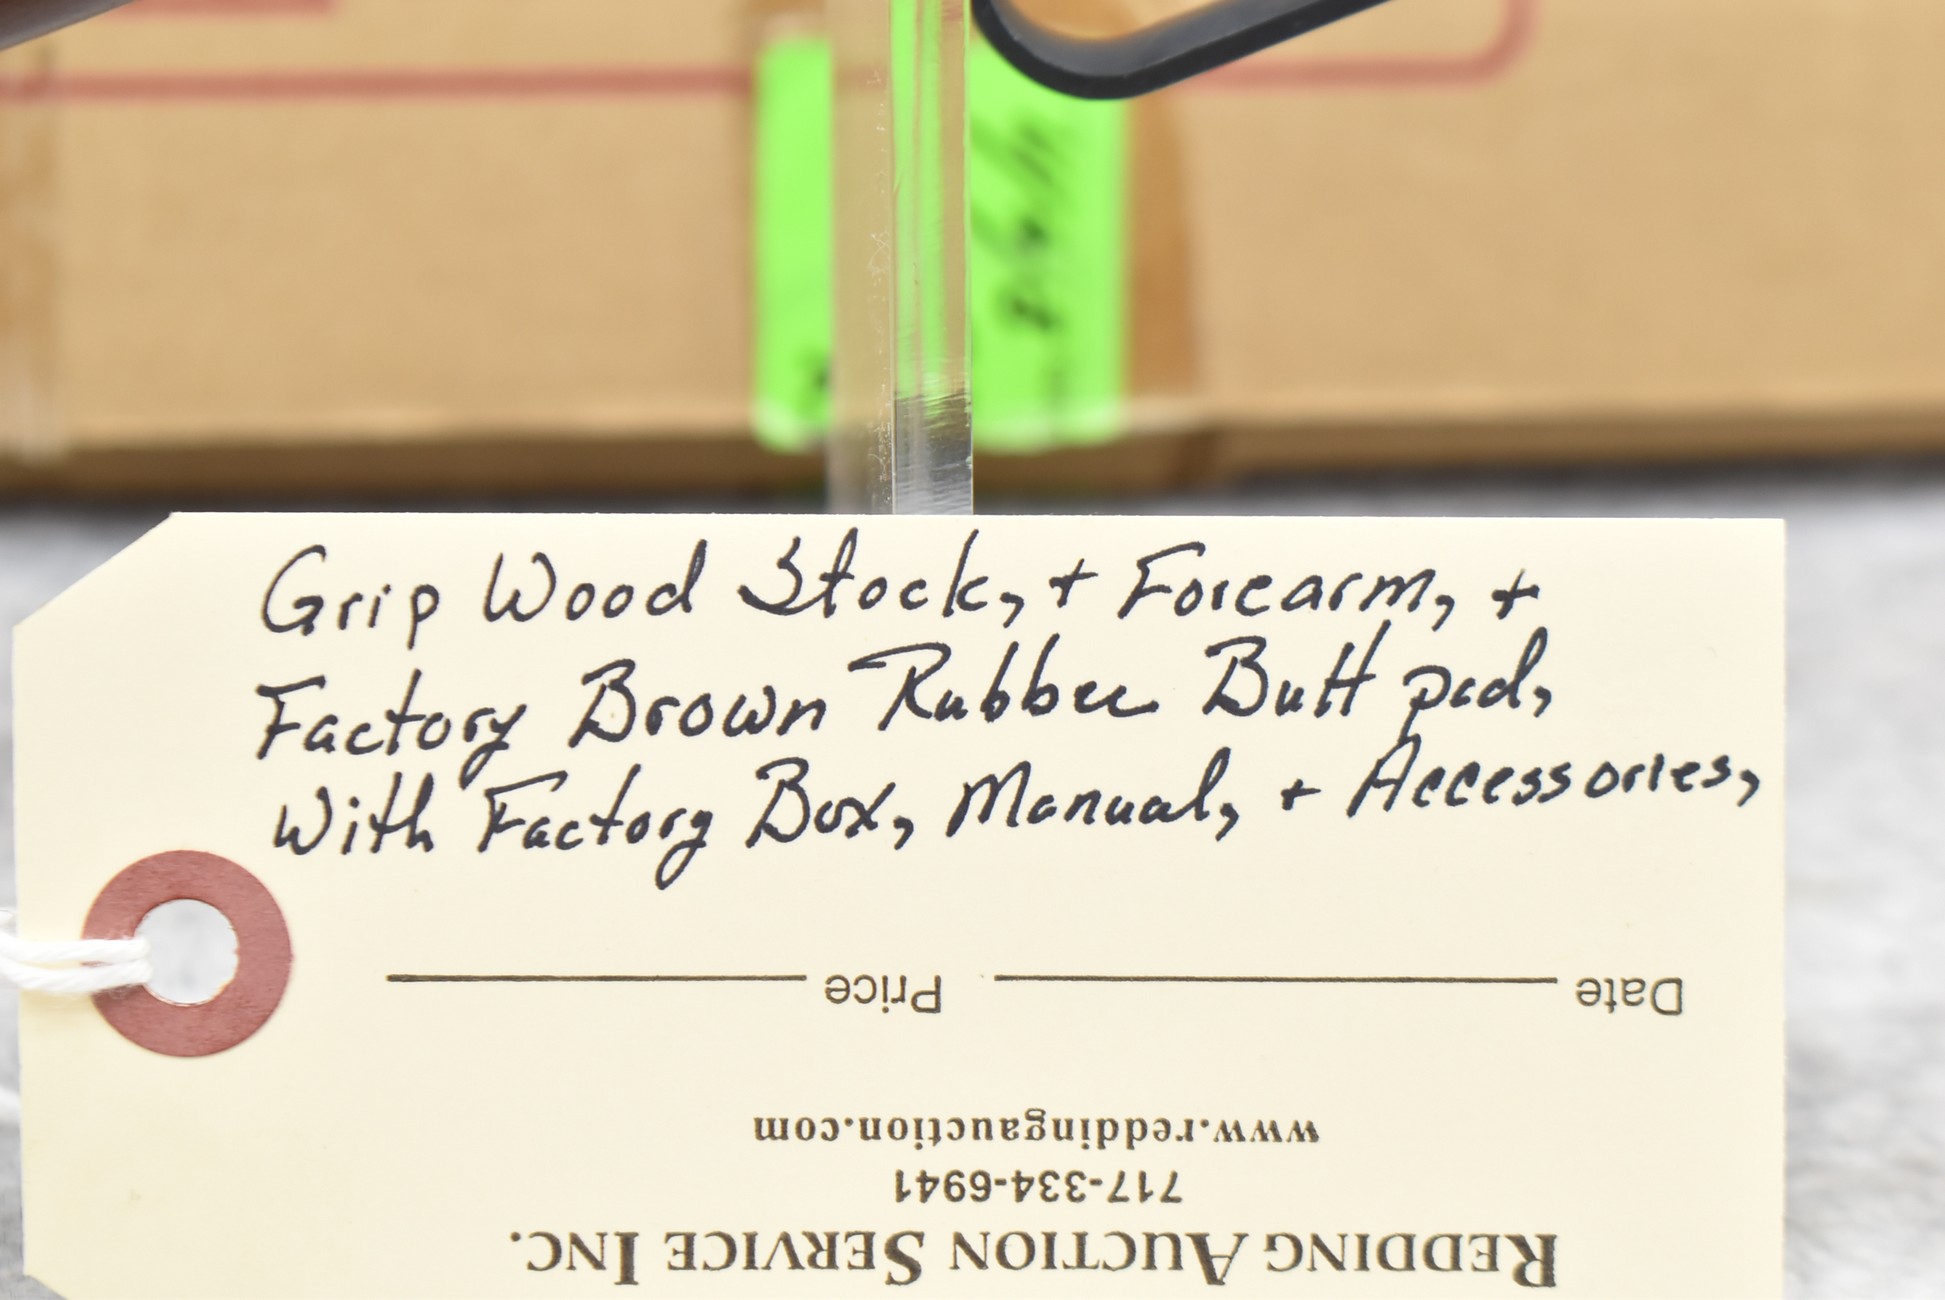 Grip Wood Stock, + Forearm, +
Factory Brown Rubber Butt pad,
With Factory Box, Manual, + Accessories,
Date Price
www.reddingauction.com
717-334-6941
REDDING AUCTION SERVICE INC.